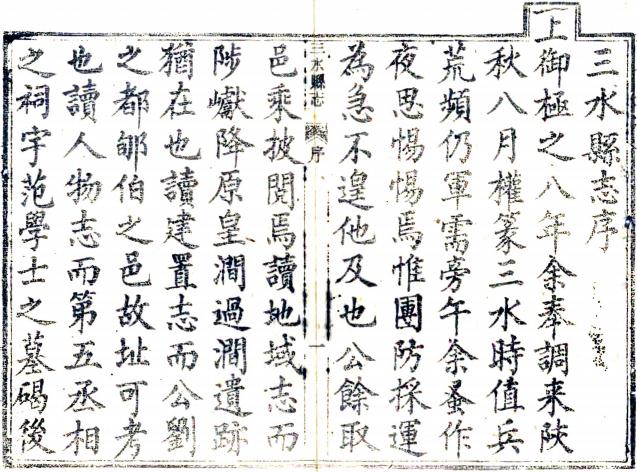 三水縣志序
上御極之八年余奉調來陝
秋八月權篆三水時值兵
荒頻仍軍需旁午余蚤作
夜思惕惕焉惟團防採運
為急不遑他及也公餘取
三水縣志 序 一
邑乘披閱焉讀地域志而
陟巘降原皇澗過澗遺跡
猶在也讀建置志而公劉
之都郇伯之邑故址可考
也讀人物志而第五丞相
之祠宇范學士之墓碣後